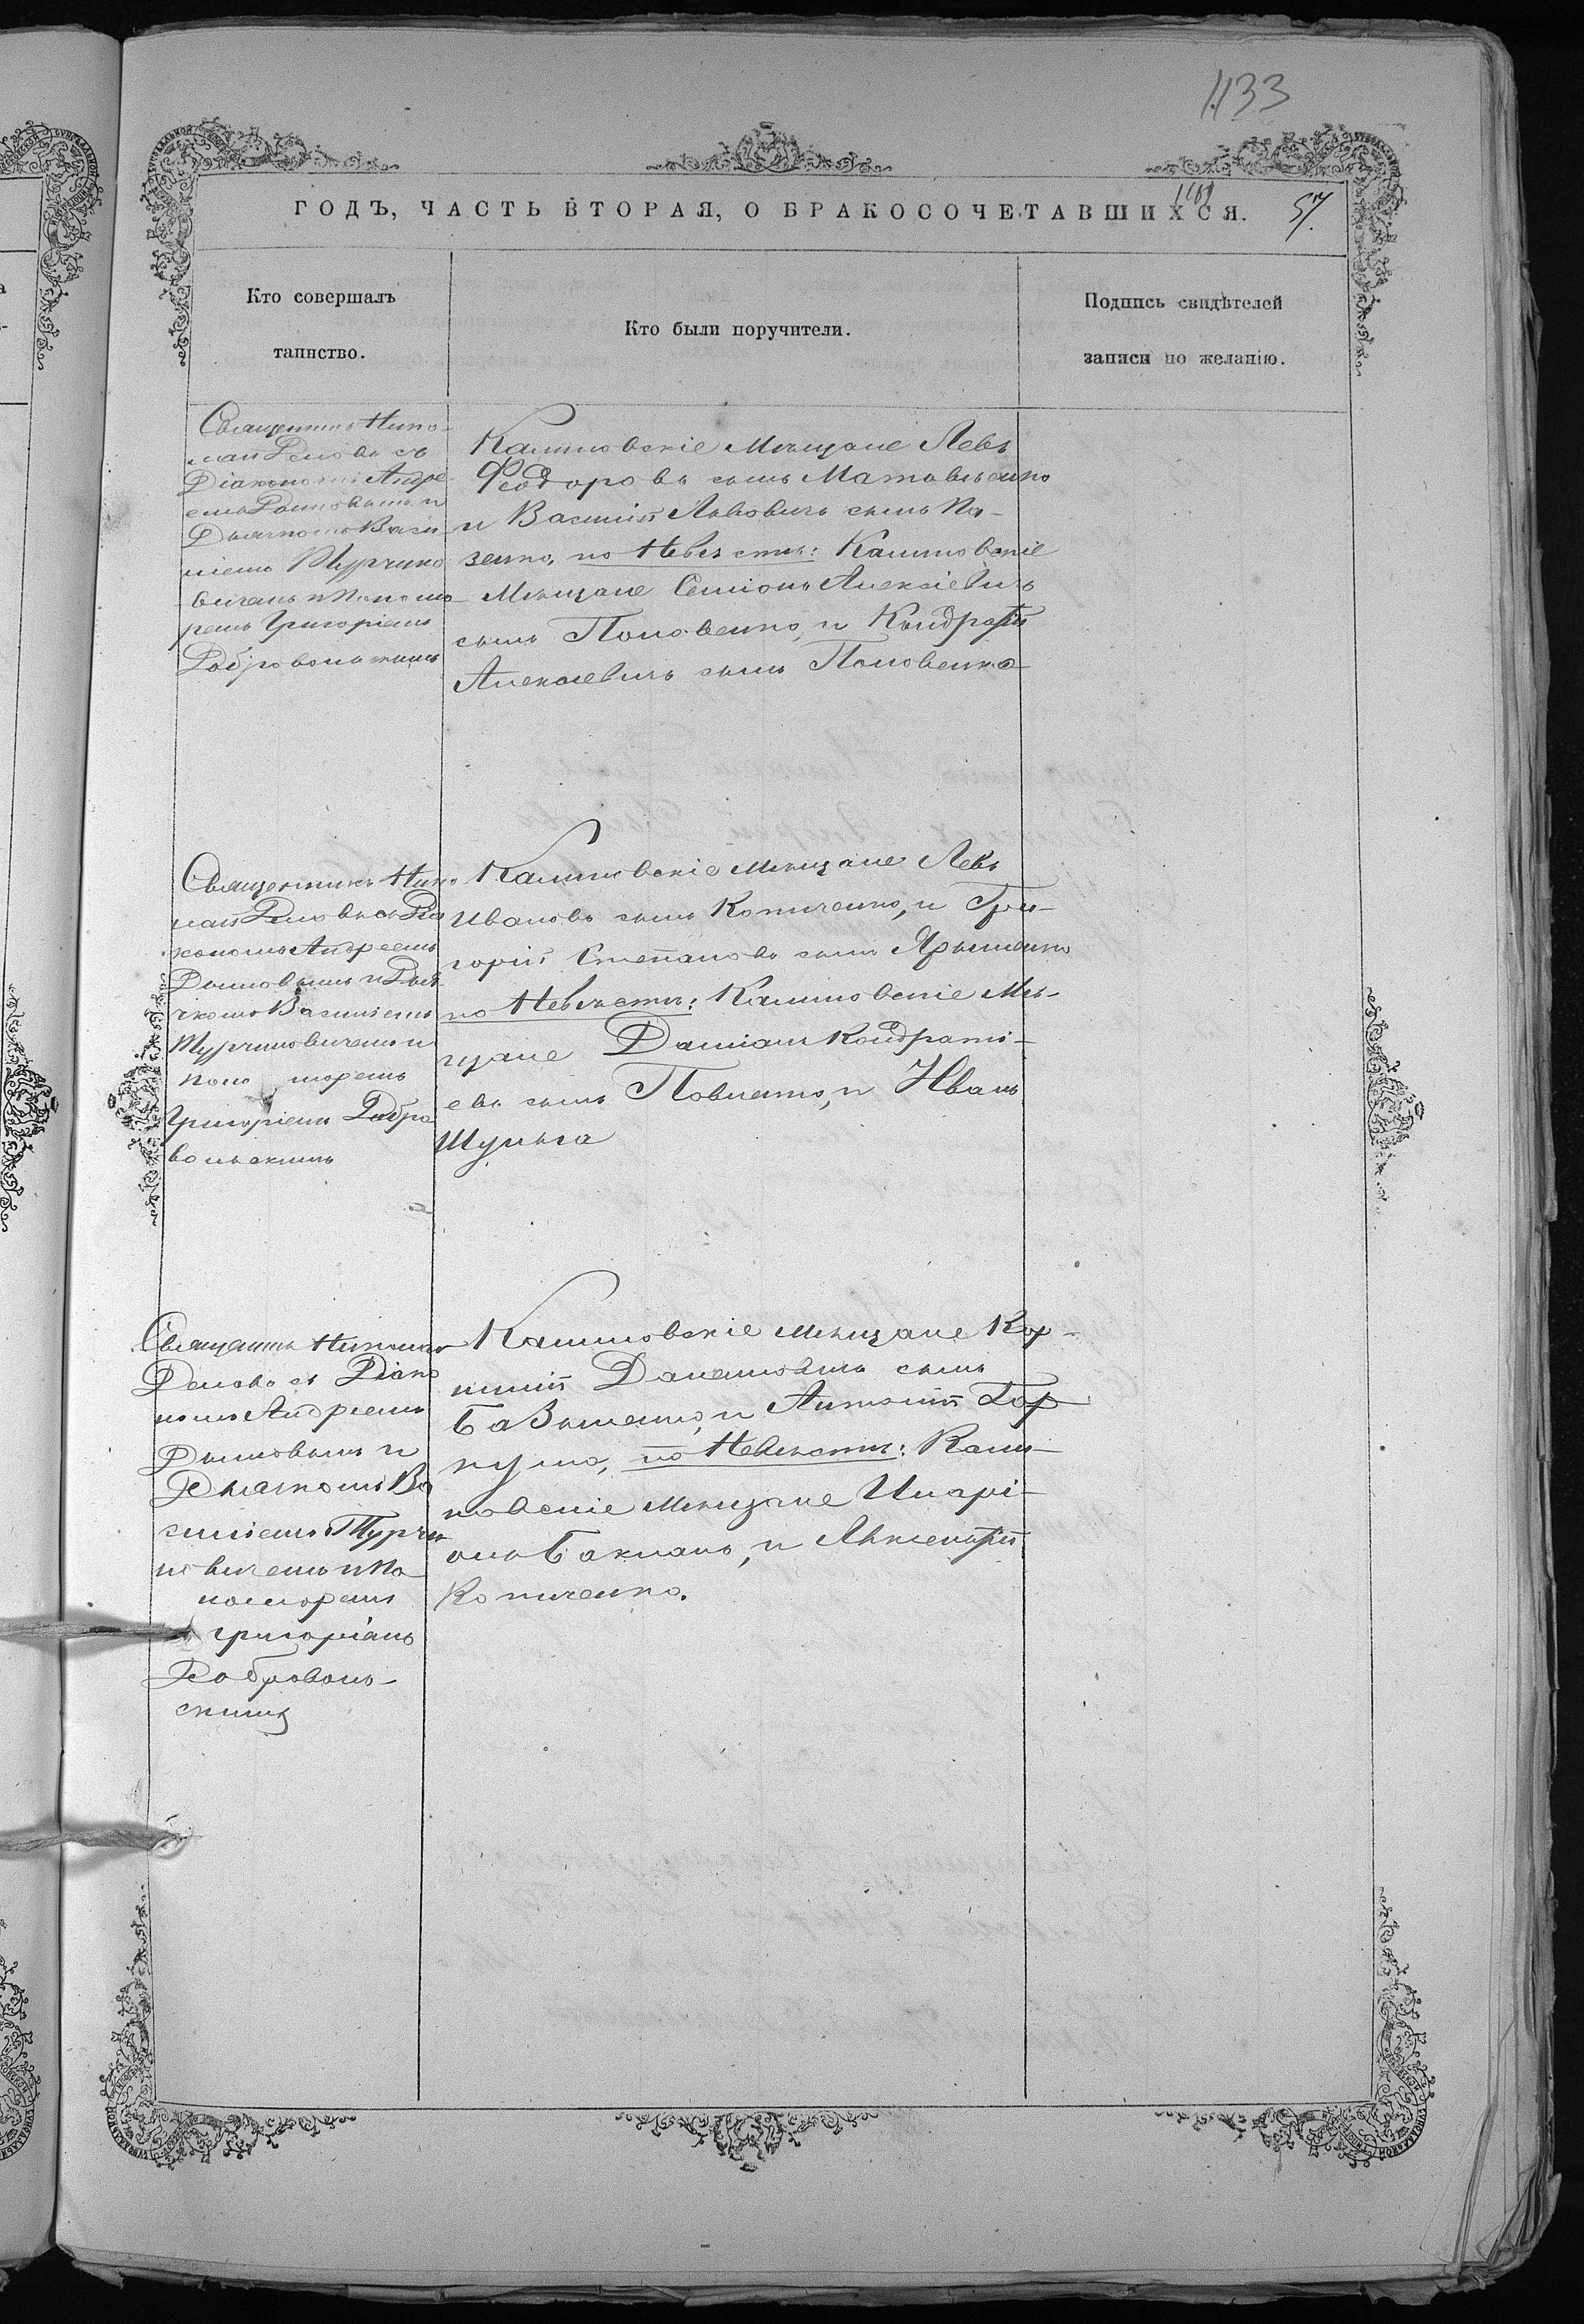 1133
ГОДЪ, ЧАСТЬ ВТОРАЯ, О БРАКОСОЧЕТАВШИХСЯ.
57.
Кто совершалъ
таинство.
Кто были поручители.
Подпись свидѣтелей
записи по желанію.
Священникъ Нико-
лай съ
Діакономъ Андре-
емъ Дымовымъ и
Дьячкомъ Васи-
ліемъ Турчино-
вичемъ и Поно-
ремъ Григоріемъ
Добровольскимъ
Калиновскіе Мѣщане Левъ
Феодоровъ сынъ Матвѣенко
и Василій Львовичъ сынъ Ла-
зенко, по Невѣстѣ: Калиновскіе
Мѣщане Семіонъ Алексіевичъ
сынъ Половенко, и Кондратій
Алексѣевичъ сынъ Половенко
Священникъ Нико
лай съ Діа
кономъ Андреемъ
Дымовымъ и Дья
чкомъ Василіемъ
Турчиновичемъ и
поно моремъ
Григоріемъ Добро
вольскимъ
Калиновскіе Мѣщане Левъ
Ивановъ сынъ Копиченко, и Гри-
горій Степановъ сынъ Ярыменко
по Невѣстѣ: Калиновскіе Мѣ-
щане Даміанъ Кондраті-
евъ сынъ и Иванъ
Шульга
Священникъ Николай
съ Діако
номъ Андреемъ
Дымовымъ и
Дьячкомъ Ва
силіемъ Турчи
новичемъ и По
номоремъ
Григоріемъ
Доброволь-
скимъ
Калиновскіе Мѣщане Кор-
нилій сынъ
и Антоній Гор-
по Невѣстѣ: Кали-
новскіе Мѣщане Иларі-
онъ Бакланъ, и Авксентій
Копиченко.